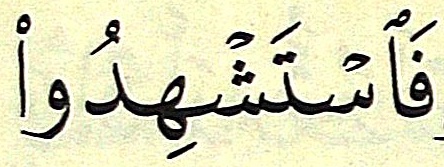 فَٱسۡتَشۡهِدُواْ